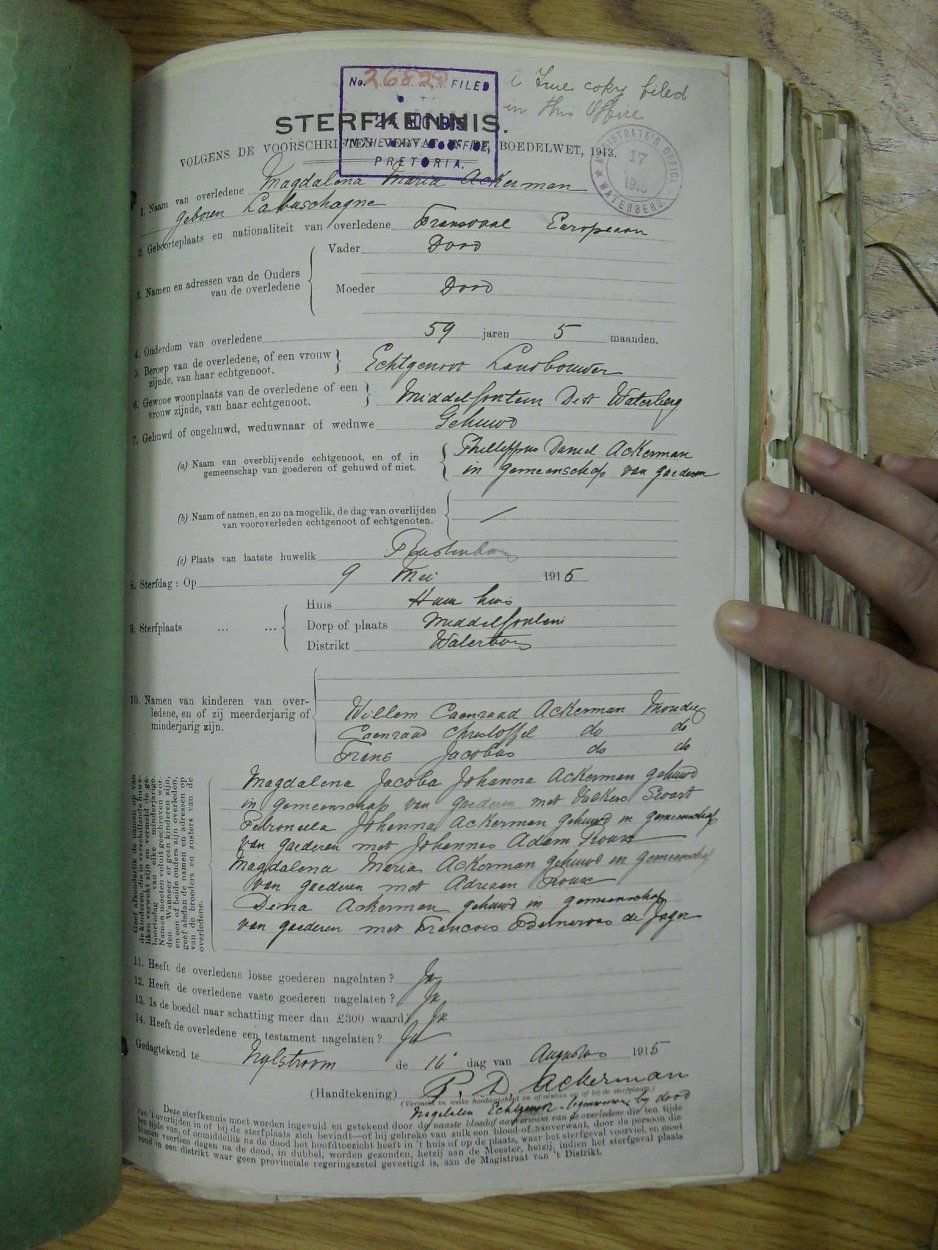 No. 26820 FILED
PRETORIA.
A True copy filed
in this Office
STERFKENNIS.
MAGISTRATE'S OFFICE
17
1915
WATERBERG.
VOLGENS DE VOORSCHRIFTEN BOEDELWET, 1913.
1. Naam van overledene Magdalena Maria Ackerman
geboren Labuschagne
2. Geboorteplaats en nationaliteit van overledene Transvaal European
3. Namen en adressen van de Ouders van de overledene
Vader Dood
Moeder Dood
4. Ouderdom van overledene 59 jaren 5 maanden.
5. Beroep van de overledene, of een vrouw
zijnde, van haar echtgenoot.
Echtgenoot Landbouwer
6. Gewone woonplaats van de overledene of een
vrouw zijnde, van haar echtgenoot.
Middelfontein Dist Waterberg
7. Gehuwd of ongehuwd, weduwnaar of weduwe Gehuwd
(a) Naam van overblijvende echtgenoot, en of in
gemeenschap van goederen of gehuwd of niet.
Phillippus Daniel Ackerman
in gemeenschap van goederen
(b) Naam of namen, en zo na mogelik, de dag van overlijden
van vooroverleden echtgenoot of echtgenoten.
(c) Plaats van laatste huwelik Rustenburg
8. Sterfdag: Op 9 Mei 1915
9. Sterfplaats ... ...
Huis Haar huis
Dorp of plaats Middelfontein
Distrikt Waterberg
10. Namen van kinderen van over-
ledene, en of zij meerderjarig of
minderjarig zijn.
Willem Coenraad Ackerman Mondig
Coenraad Christoffel do do
Frans Jacobus do do
Magdalena Jacoba Johanna Ackerman gehuwd
in gemeenschap van goederen met
Petronella Johanna Ackerman gehuwd in gemeenschap
van goederen met Johannes Adam
Magdalena Maria Ackerman gehuwd in gemeenschap
van goederen met Adriaan
Dina Ackerman gehuwd in gemeenschap
van goederen met Francois de Jager
Geef afzonderlik de namen op van
de kinderen, die in verschillende huwe-
liken verwekt zijn en vermeld de ge-
boortedag van elke minderjarige.
Namen moeten voluit geschreven wor-
den. Wanneer er geen kinderen zijn,
en een of beide ouders zijn overleden,
geef alsdan de namen en adressen op
van de broeders en zusters van de
overledene.
11. Heeft de overledene losse goederen nagelaten? Ja
12. Heeft de overledene vaste goederen nagelaten? Ja
13. Is de boedel naar schatting meer dan £300 waard? Ja
14. Heeft de overledene een testament nagelaten? Ja
Gedagtekend te Nylstroom de 16 dag van Augustus 1915
(Handtekening) P. D. Ackerman
(Vermeld in welke hoedanigheid en of alsdan of bij de sterfplaats.)
Echtgenoot by dood
Deze sterfkennis moet worden ingevuld en getekend door de naaste bloedaanverwant van de overledene die ten tijde
van 't overlijden in of bij de sterfplaats zich bevindt—of bij gebreke van zulk een bloedaanverwant, door de persoon die
ten tijde van, of onmiddellik na de dood het hoofdtoezicht heeft in 't huis of op de plaats, waar het sterfgeval voorviel, en moet
binnen veertien dagen na de dood, in dubbel, worden gezonden, hetzij aan de Meester, hetzij, indien het sterfgeval plaats
vond in een distrikt waar geen provinciale regeringszetel gevestigd is, aan de Magistraat van 't Distrikt.